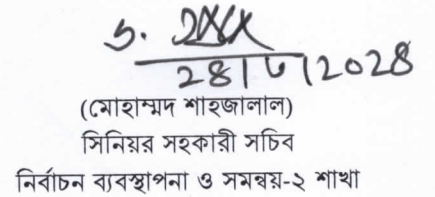 ২৪|৩|২০২৪
(মোহাম্মদ শাহজালাল)
সিনিয়র সহকারী সচিব
নির্বাচন ব্যবস্থাপনা ও সমন্বয়-২ শাখা